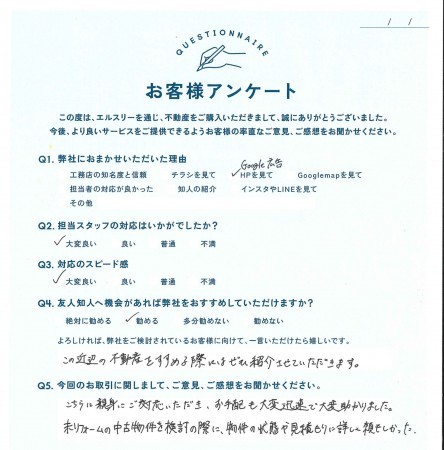 QUESTIONNAIRE
お客様アンケート
この度は、エルスリーを通じ、不動産をご購入いただきまして、誠にありがとうございました。
今後、より良いサービスをご提供できるようお客様の率直なご意見、ご感想をお聞かせください。
Q1. 弊社におまかせいただいた理由
Google広告
工務店の知名度と信頼 チラシを見て ✓HPを見て Googlemapを見て
担当者の対応が良かった 知人の紹介 インスタやLINEを見て
その他
Q2. 担当スタッフの対応はいかがでしたか?
✓大変良い 良い 普通 不満
Q3. 対応のスピード感
✓大変良い 良い 普通 不満
Q4. 友人知人へ機会があれば弊社をおすすめしていただけますか?
絶対に勧める ✓勧める 多分勧めない 勧めない
よろしければ、弊社をご検討されているお客様に向けて、一言いただけたら嬉しいです。
この近辺の不動産をすすめる際にはぜひ紹介させていただきます。
Q5. 今回のお取引に関しまして、ご意見、ご感想をお聞かせください。
こちらに親身にご対応いただき、お手配も大変迅速で大変助かりました。
未リフォームの中古物件を検討の際に、物件の状態や見積もりに詳しく頼もしかった。